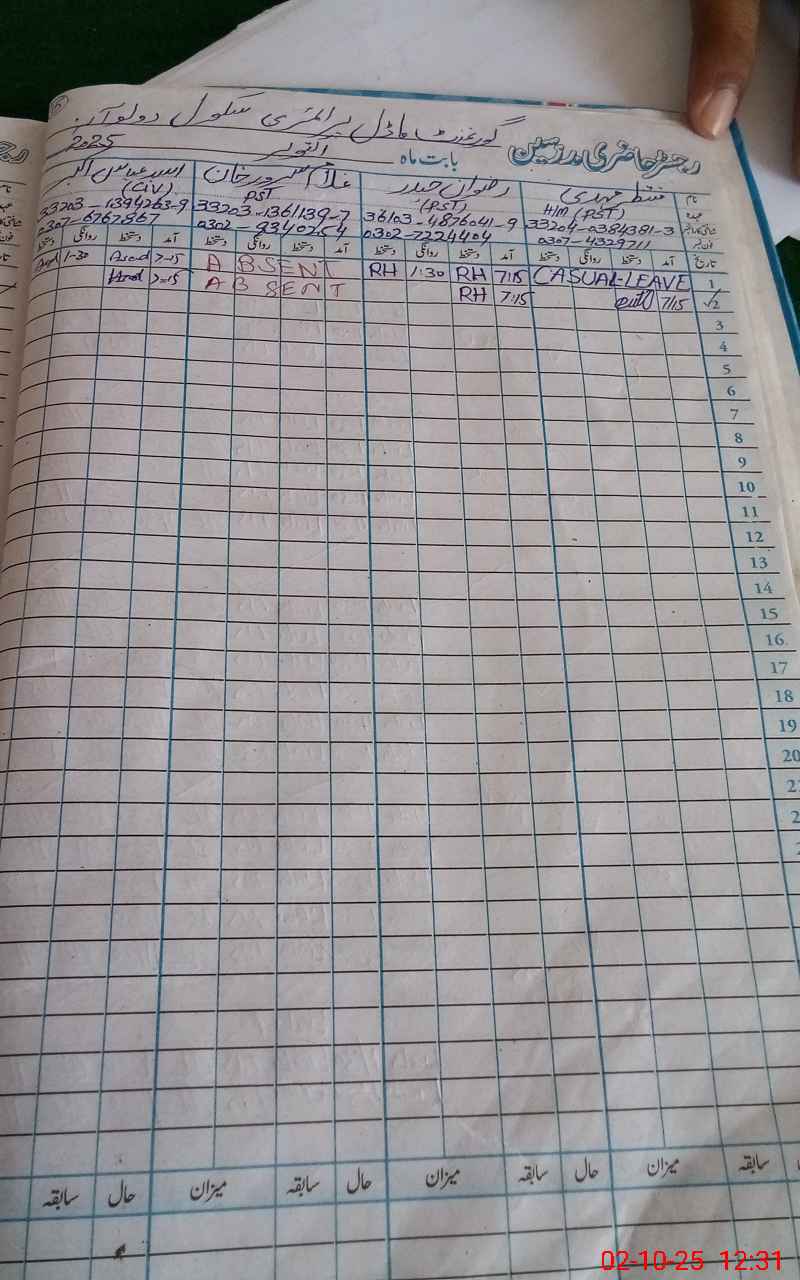 رجسٹر حاضری مدرسین گورنمنٹ ماڈل پرائمری سکول
بابت ماہ اکتوبر 2025
نام منتظر مہدی رضوان حیدر غلام سرور خان
عہدہ H/M (PST) (PST) PST (CIV)
33204-0384381-3 36103-4876041-9 33203-1361139-7 33203-1394263-9
فون نمبر 0307-4329711 0302-7224404 0302-9340254 0307-6767867
تاریخ آمد دستخط روانگی دستخط آمد دستخط روانگی دستخط آمد دستخط روانگی دستخط آمد دستخط روانگی دستخط
1 CASUAL-LEAVE 7:15 RH 1:30 RH ABSENT 7-15 Asad 1-30
2 7/15 7:15 RH ABSENT 7-15
3
4
5
6
7
8
9
10
11
12
13
14
15
16
17
18
19
20
سابقہ میزان حال سابقہ میزان حال سابقہ میزان حال سابقہ
02-10-25 12:31